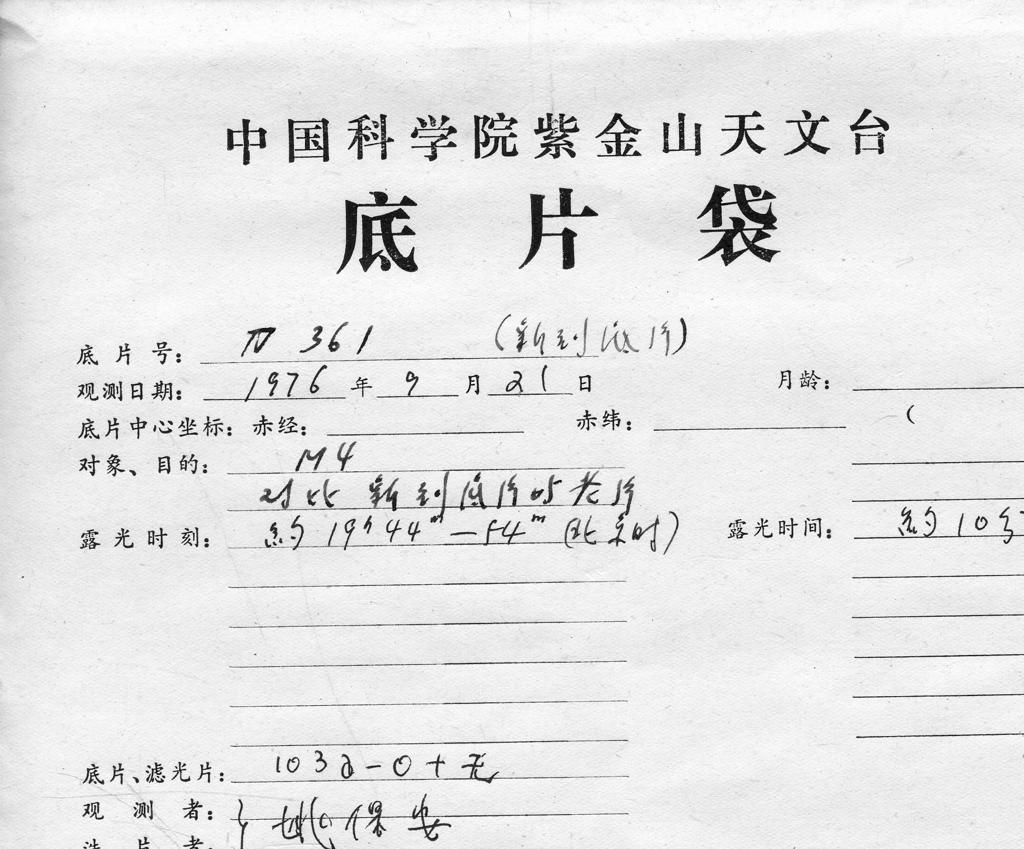 中国科学院紫金山天文台
底片袋
底片号： 361 (新到底片)
观测日期： 1976 年 9 月 21 日 月龄：
底片中心坐标： 赤经： 赤纬： (
对象、目的： M4
对比新到底片的老片
露光时刻： 約 19h 44m—54m (北京时) 露光时间： 約 10分
底片、滤光片： 103a-O + 无
观测者： 姚保安
洗片者：